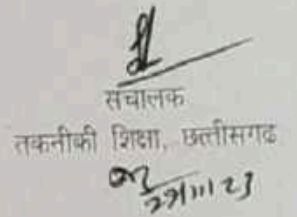 संचालक
तकनीकी शिक्षा, छत्तीसगढ
29/11/23